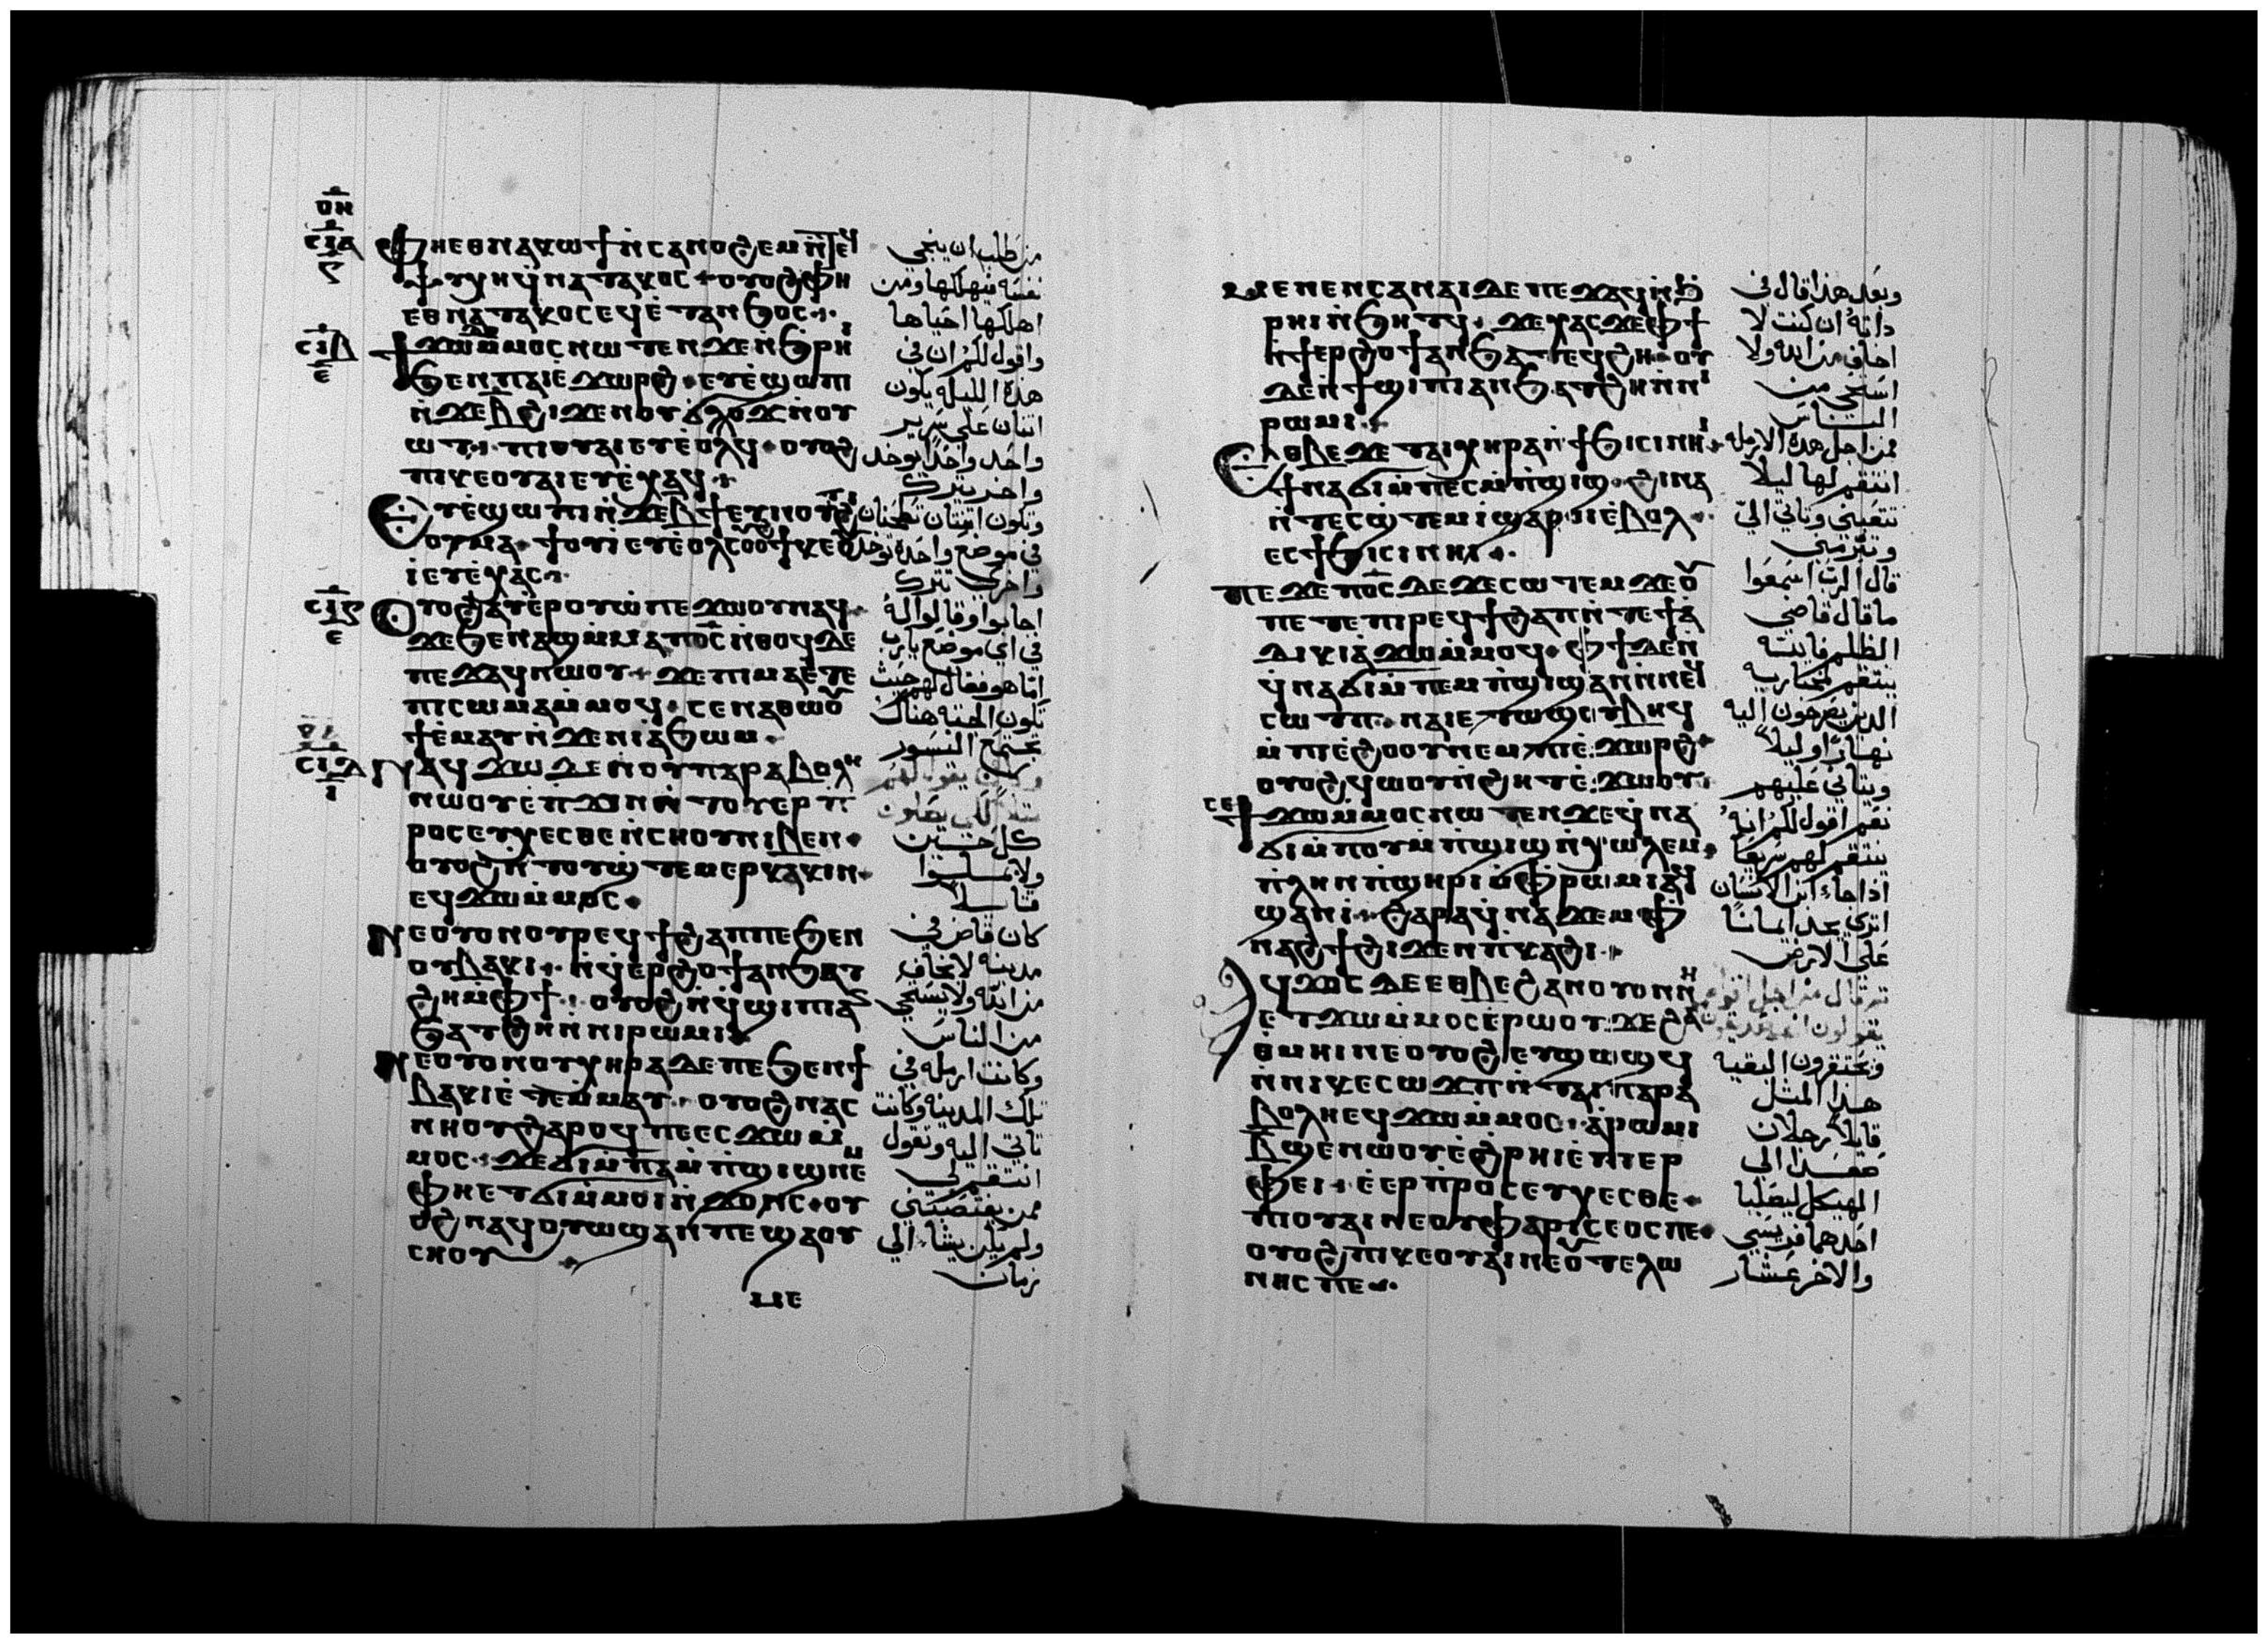 ⲟⲏ
ⲥⲓⲁ
ⲋ
ⲫⲏⲉⲑⲛⲁⲕⲱϯⲛ̀ⲥⲁⲛⲟϩⲉⲙⲛ̀ⲧⲉϥ
ⲯⲩⲭⲏϥⲛⲁⲧⲁⲕⲟⲥ ⲟⲩⲟϩⲫⲏ
ⲉⲑⲛⲁⲧⲁⲕⲟⲥⲉϥⲉ̀ⲧⲁⲛϧⲟⲥ
ⲥⲓⲃ
ⲉ
ϯϫⲱⲙ̀ⲙⲟⲥⲛⲱⲧⲉⲛϫⲉⲛ̀ϧⲣⲏⲓ
ϧⲉⲛⲡⲁⲓⲉ̀ϫⲱⲣϩ ⲉⲩⲉ̀ϣⲱⲡⲓ
ⲛ̀ϫⲉⲃ̅ϩⲓϫⲉⲛⲟⲩϭⲗⲟϫⲛ̀ⲟⲩ
ⲱⲧ ⲡⲓⲟⲩⲁⲓⲉⲩⲉ̀ⲟⲗϥ ⲟⲩⲟϩ
ⲡⲓⲕⲉⲟⲩⲁⲓⲉⲩⲉ̀ⲭⲁϥ
ⲉⲩⲉ̀ϣⲱⲡⲓⲛ̀ϫⲉⲃ̅ϯⲉⲩⲛⲟⲩⲧϩⲓ
ⲟⲩⲙⲁ ϯⲟⲩⲓⲉⲩⲉ̀ⲟⲗⲥⲟⲩⲟϩϯⲕⲉⲟⲩ
ⲓⲉⲩⲉ̀ⲭⲁⲥ
ⲥⲓⲋ
ⲉ
ⲟⲩⲟϩⲁⲩⲉ̀ⲣⲟⲩⲱ̀ⲡⲉϫⲱⲟⲩⲛⲁϥ
ϫⲉϧⲉⲛⲁϣⲙ̀ⲙⲁⲡⲟ̅ⲥ̅ⲛ̀ⲑⲟϥⲇⲉ
ⲡⲉϫⲁϥⲛⲱⲟⲩ ϫⲉⲡⲓⲙⲁⲉ̀ⲧⲉ
ⲡⲓⲥⲱⲙⲁⲙ̀ⲙⲟϥ ⲥⲉⲛⲁⲑⲱⲟⲩ
ϯⲉ̀ⲙⲁⲩⲛ̀ϫⲉⲛⲓⲁ̀ϧⲱⲙ
ⲥⲓⲇ
ⲓ
ⲛⲁϥϫⲱⲇⲉⲛⲟⲩⲡⲁⲣⲁⲃⲟⲗⲏ
ⲛⲱⲟⲩⲉ̀ⲡϫⲓⲛⲛ̀ⲧⲟⲩⲉⲣⲡ̀
ⲣⲟⲥⲉⲩⲭⲉⲥⲑⲉⲛ̀ⲥⲏⲟⲩⲛⲓⲃⲉⲛ
ⲟⲩⲟϩⲛ̀ⲧⲟⲩϣ̀ⲧⲉⲙⲉⲣⲕⲁⲕⲓⲛ
ⲉϥϫⲱⲙ̀ⲙⲟⲥ
ⲛⲉⲟⲩⲟⲛⲟⲩⲣⲉϥϯϩⲁⲡⲡⲉϧⲉⲛ
ⲟⲩⲃⲁⲕⲓ ⲛ̀ϥⲉⲣϩⲟϯⲁⲛϧⲁⲧ
ϩⲏⲙ̀ⲫϯ ⲟⲩⲟϩⲛ̀ϥϣⲓⲡⲓⲁⲛ
ϧⲁⲧϩⲏⲛ̀ⲛⲓⲣⲱⲙⲓ
ⲛⲉⲟⲩⲟⲛⲟⲩⲭⲏⲣⲁⲇⲉⲡⲉϧⲉⲛϯ
ⲃⲁⲕⲓⲉ̀ⲧⲉⲙ̀ⲙⲁⲩ ⲟⲩⲟϩⲛⲁⲥ
ⲛⲏⲟⲩϩⲁⲣⲟϥⲡⲉⲉⲥϫⲱⲙ̀
ⲙⲟⲥ ϫⲉϭⲓⲙ̀ⲡⲁⲙ̀ⲡ̀ϣⲓϣⲛⲉⲙ
ⲫⲏⲉⲧϭⲓⲙ̀ⲙⲟⲓⲛ̀ϫⲟⲛⲥ ⲟⲩ
ⲟϩⲛⲁϥⲟⲩⲱϣⲁⲛⲡⲉϣⲁⲟⲩ
ⲥⲏⲟⲩ
ⲙⲉ
من طلب ان ينجي
نفسه فيهلكها ومن
اهلكها احياها
واقول لكم ان في
هذه الليله يكون
اثنان على سرير
واحد واحدا يوخد
واخر يترك
وتكون اثنتان تطحنان
في موضع واحده توخد
واخرى تترك
اجابوا وقالوا له
في اي موضع يا رب
اما هو فقال لهم حيث
تكون الجثه هناك
تجتمع النسور
يقول لهم
لكي يصلون
كل حين
ولا يملوا
قايلا
كان قاض في
مدينه لا يخاف
من الله ولا يستحي
من الناس
وكانت ارمله في
تلك المدينه وكانت
تاتي اليه وتقول
انتقم لي
ممن يغتصبني
ولم يكن يشاء الي
زمان
ⲙⲉⲛⲉⲛⲥⲁⲛⲁⲓⲇⲉⲡⲉϫⲁϥⲛ̀ϧ
ⲣⲏⲓⲛ̀ϧⲏⲧϥ ϫⲉⲭⲁⲥϫⲉⲫϯ
ⲛ̀ϯⲉⲣϩⲟϯⲁⲛϧⲁⲧⲉϥϩⲏ ⲟⲩ
ⲇⲉⲛ̀ϯϣⲓⲡⲓⲁⲛϧⲁⲧϩⲏⲛ̀ⲛⲓ
ⲣⲱⲙⲓ
ⲉⲑⲃⲉϫⲉⲧⲁⲓⲭⲏⲣⲁⲛ̀ϯϧⲓⲥⲓⲛⲏⲓ
ϯⲛⲁϭⲓⲙ̀ⲡⲉⲥⲙ̀ⲡ̀ϣⲓϣ ϩⲓⲛⲁ
ⲛ̀ⲧⲉⲥϣ̀ⲧⲉⲙⲓ̀ϣⲁⲣⲟⲓⲉ̀ⲃⲟⲗ
ⲉⲥϯϧⲓⲥⲓⲛⲏⲓ
ⲡⲉϫⲉⲡⲟ̅ⲥ̅ⲇⲉϫⲉⲥⲱⲧⲉⲙϫⲉⲟⲩ
ⲡⲉⲧⲉⲡⲓⲣⲉϥϯϩⲁⲡⲛ̀ⲧⲉϯⲁ̀
ⲇⲓⲕⲓⲁ̀ϫⲱⲙ̀ⲙⲟϥ ⲫϯⲇⲉⲛ̀
ϥⲛⲁϭⲓⲙ̀ⲡⲉⲙⲡ̀ϣⲓϣⲁⲛⲛ̀ⲛⲉϥ
ⲥⲱⲧⲡ ⲛⲁⲓⲉⲧⲱϣⲟⲩⲃⲏϥ
ⲙ̀ⲡⲓⲉ̀ϩⲟⲟⲩⲛⲉⲙⲡⲓⲉ̀ϫⲱⲣϩ
ⲟⲩⲟϩϥⲱⲟⲩⲛ̀ϩⲏⲧⲉ̀ϫⲱⲟⲩ
ⲥⲉ
ϯϫⲱⲙ̀ⲙⲟⲥⲛⲱⲧⲉⲛϫⲉϥⲛⲁ
ϭⲓⲙ̀ⲡⲟⲩⲙ̀ⲡ̀ϣⲓϣⲛ̀ⲭⲱⲗⲉⲙ
ⲡⲗⲏⲛⲡ̀ϣⲏⲣⲓⲙ̀ⲫⲣⲱⲙⲓⲁϥ
ϣⲁⲛⲓ̀ ϩⲁⲣⲁϥⲛⲁϫⲉⲙⲫ
ⲛⲁϩϯϩⲓϫⲉⲛⲡⲕⲁϩⲓ
ⲁϥϫⲟⲥⲇⲉⲉⲑⲃⲉϩⲁⲛⲟⲩⲟⲛⲛⲏ
ⲉⲧϫⲱⲙ̀ⲙⲟⲥⲉ̀ⲣⲱⲟⲩ ϫⲉϩⲁⲛ
ⲑⲙⲏⲓⲛⲉⲟⲩⲟϩⲉⲧϣⲱϣϥ
ⲛ̀ⲛⲓⲕⲉⲥⲱϫⲡⲛ̀ⲧⲁⲓⲡⲁⲣⲁ
ⲃⲟⲗⲏⲉϥϫⲱⲙ̀ⲙⲟⲥ ⲁ̀ⲣⲱⲙⲓ
ⲃ̅ϣⲉⲛⲱⲟⲩⲉ̀ϩⲣⲏⲓⲉ̀ⲡⲓⲉⲣ
ⲫⲉⲓ ⲉ̀ⲉⲣⲡ̀ⲣⲟⲥⲉⲩⲭⲉⲥⲑⲉ
ⲡⲓⲟⲩⲁⲓⲛⲉⲟⲩⲫⲁⲣⲓⲥⲉⲟⲥⲡⲉ
ⲟⲩⲟϩⲡⲓⲕⲉⲟⲩⲁⲓⲛⲉⲟⲩⲧⲉⲗⲱ
ⲛⲏⲥⲡⲉ
وبعد هذا قال في
ذاته ان كنت لا
اخاف من الله ولا
استحي من
الناس
فمن اجل هذه الارمله
انتقم لها ليلا
تتعبني وتاتي الي
وتبرمني
قال الرب اسمعوا
ما قال قاضي
الظلم فانته
ينتقم لمختاريه
الذين يصرخون اليه
نهارا وليلا
ويتاني عليهم
نعم اقول لكم انه
ينتقم لهم سريعا
اذا جاء ابن الانسان
اترى يجد ايمانا
على الارض
ثم قال من اجل اقوام
يقولون انهم صديقون
ويحتقرون البقيه
هذا المثل
قايلا رجلان
صعدا الى
الهيكل ليصليا
احدهما فريسي
والاخر عشار